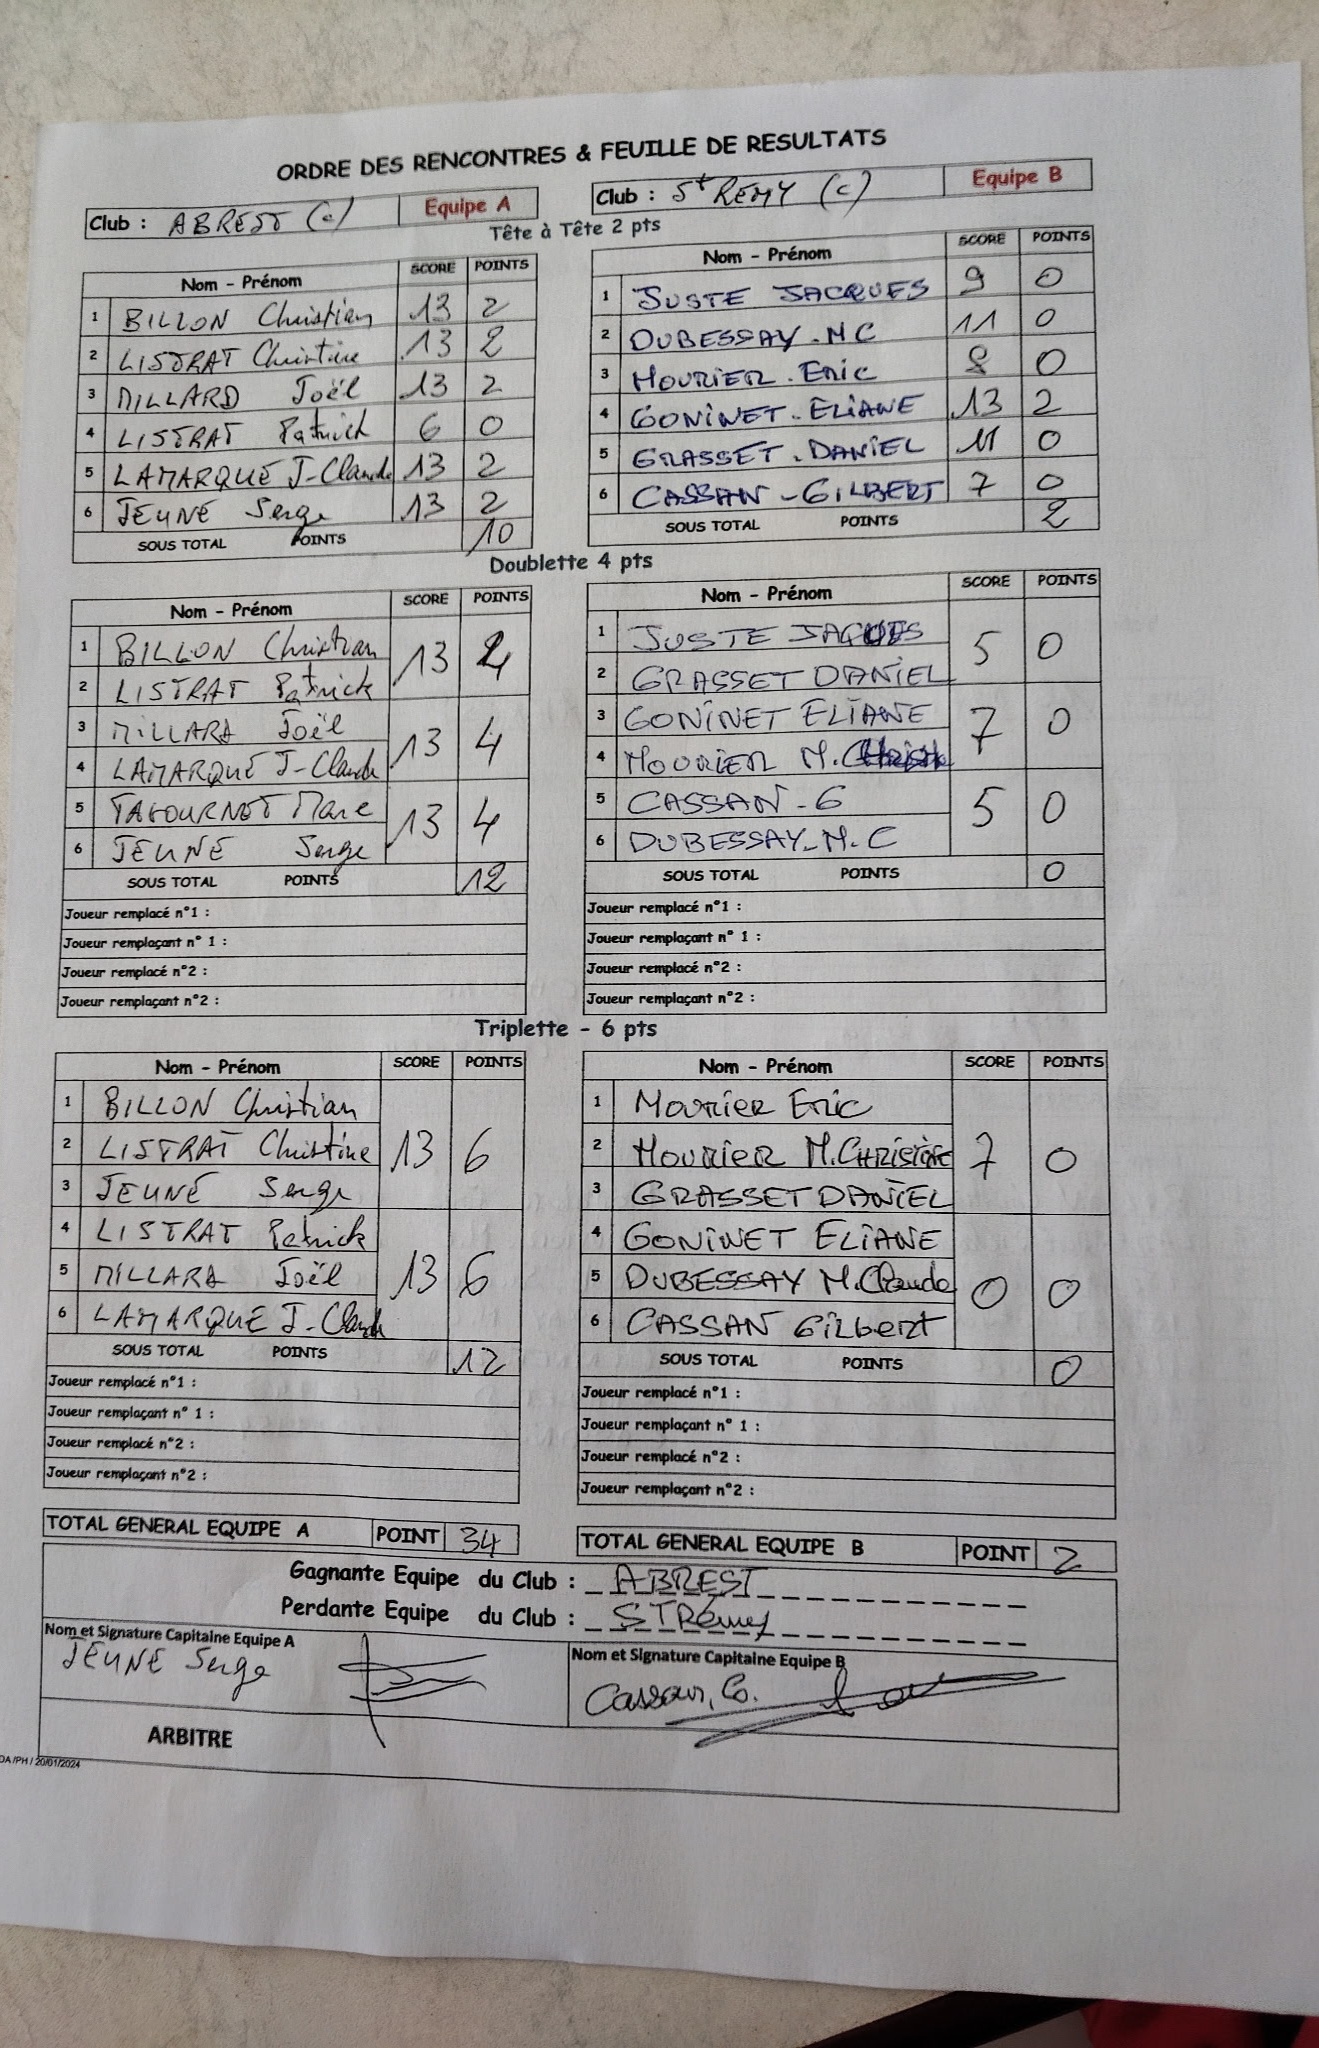 ORDRE DES RENCONTRES & FEUILLE DE RESULTATS
Club : ABREST (c) Equipe A
Club : St REMY (c) Equipe B
Tête à Tête 2 pts
Nom - Prénom SCORE POINTS
1 BILLON Christian 13 2
2 LISTRAT Christine 13 2
3 MILLARD Joël 13 2
4 LISTRAT Patrick 6 0
5 LAMARQUE J-Claude 13 2
6 JEUNE Serge 13 2
SOUS TOTAL POINTS 10
Nom - Prénom SCORE POINTS
1 JUSTE JACQUES 9 0
2 DUBESSAY . M C 11 0
3 MOURIER . Eric 8 0
4 GONINET - ELIANE 13 2
5 GRASSET . DANIEL 11 0
6 CASSAN - GILBERT 7 0
SOUS TOTAL POINTS 2
Doublette 4 pts
Nom - Prénom SCORE POINTS
1 BILLON Christian 13 4
2 LISTRAT Patrick
3 MILLARD Joël 13 4
4 LAMARQUE J-Claude
5 Marie 13 4
6 JEUNE Serge
SOUS TOTAL POINTS 12
Joueur remplacé n°1 :
Joueur remplaçant n° 1 :
Joueur remplacé n°2 :
Joueur remplaçant n°2 :
Nom - Prénom SCORE POINTS
1 JUSTE JACQUES 5 0
2 GRASSET DANIEL
3 GONINET ELIANE 7 0
4 MOURIER M.
5 CASSAN - G 5 0
6 DUBESSAY - M. C
SOUS TOTAL POINTS 0
Joueur remplacé n°1 :
Joueur remplaçant n° 1 :
Joueur remplacé n°2 :
Joueur remplaçant n°2 :
Triplette - 6 pts
Nom - Prénom SCORE POINTS
1 BILLON Christian
2 LISTRAT Christine 13 6
3 JEUNE Serge
4 LISTRAT Patrick
5 MILLARD Joël 13 6
6 LAMARQUE J-Claude
SOUS TOTAL POINTS 12
Joueur remplacé n°1 :
Joueur remplaçant n° 1 :
Joueur remplacé n°2 :
Joueur remplaçant n°2 :
Nom - Prénom SCORE POINTS
1 Mourier Eric
2 Mourier M.CHRISTINE 7 0
3 GRASSET DANIEL
4 GONINET ELIANE
5 DUBESSAY M.Claude 0 0
6 CASSAN Gilbert
SOUS TOTAL POINTS 0
Joueur remplacé n°1 :
Joueur remplaçant n° 1 :
Joueur remplacé n°2 :
Joueur remplaçant n°2 :
TOTAL GENERAL EQUIPE A POINT 34
TOTAL GENERAL EQUIPE B POINT 2
Gagnante Equipe du Club : ABREST
Perdante Equipe du Club : ST Rémy
Nom et Signature Capitaine Equipe A
JEUNE Serge
Nom et Signature Capitaine Equipe B
Cassan, G.
ARBITRE
DA/PH / 20/01/2024